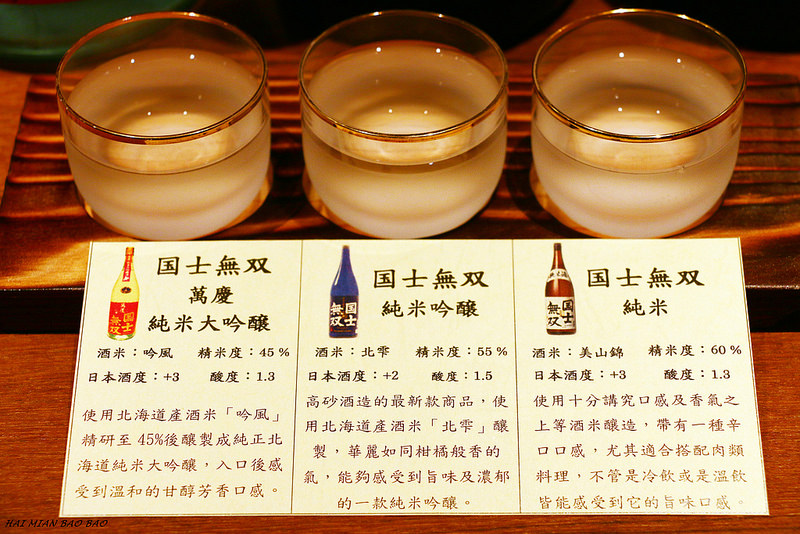 国士無双
萬慶
純米大吟醸
酒米：吟風　精米度：45％
日本酒度：+3　酸度：1.3
使用北海道產酒米「吟風」
精研至 45%後釀製成純正北
海道純米大吟釀，入口後感
受到溫和的甘醇芳香口感。
国士無双
純米吟醸
酒米：北雫　精米度：55％
日本酒度：+2　酸度：1.5
高砂酒造的最新款商品，使
用北海道產酒米「北雫」釀
製，華麗如同柑橘般香的
氣，能夠感受到旨味及濃郁
的一款純米吟釀。
国士無双
純米
酒米：美山錦　精米度：60％
日本酒度：+3　酸度：1.3
使用十分講究口感及香氣之
上等酒米釀造，帶有一種辛
口口感，尤其適合搭配肉類
料理，不管是冷飲或是溫飲
皆能感受到它的旨味口感。
国士
無双
国士
無双
国士
無双
HAI MIAN BAO BAO